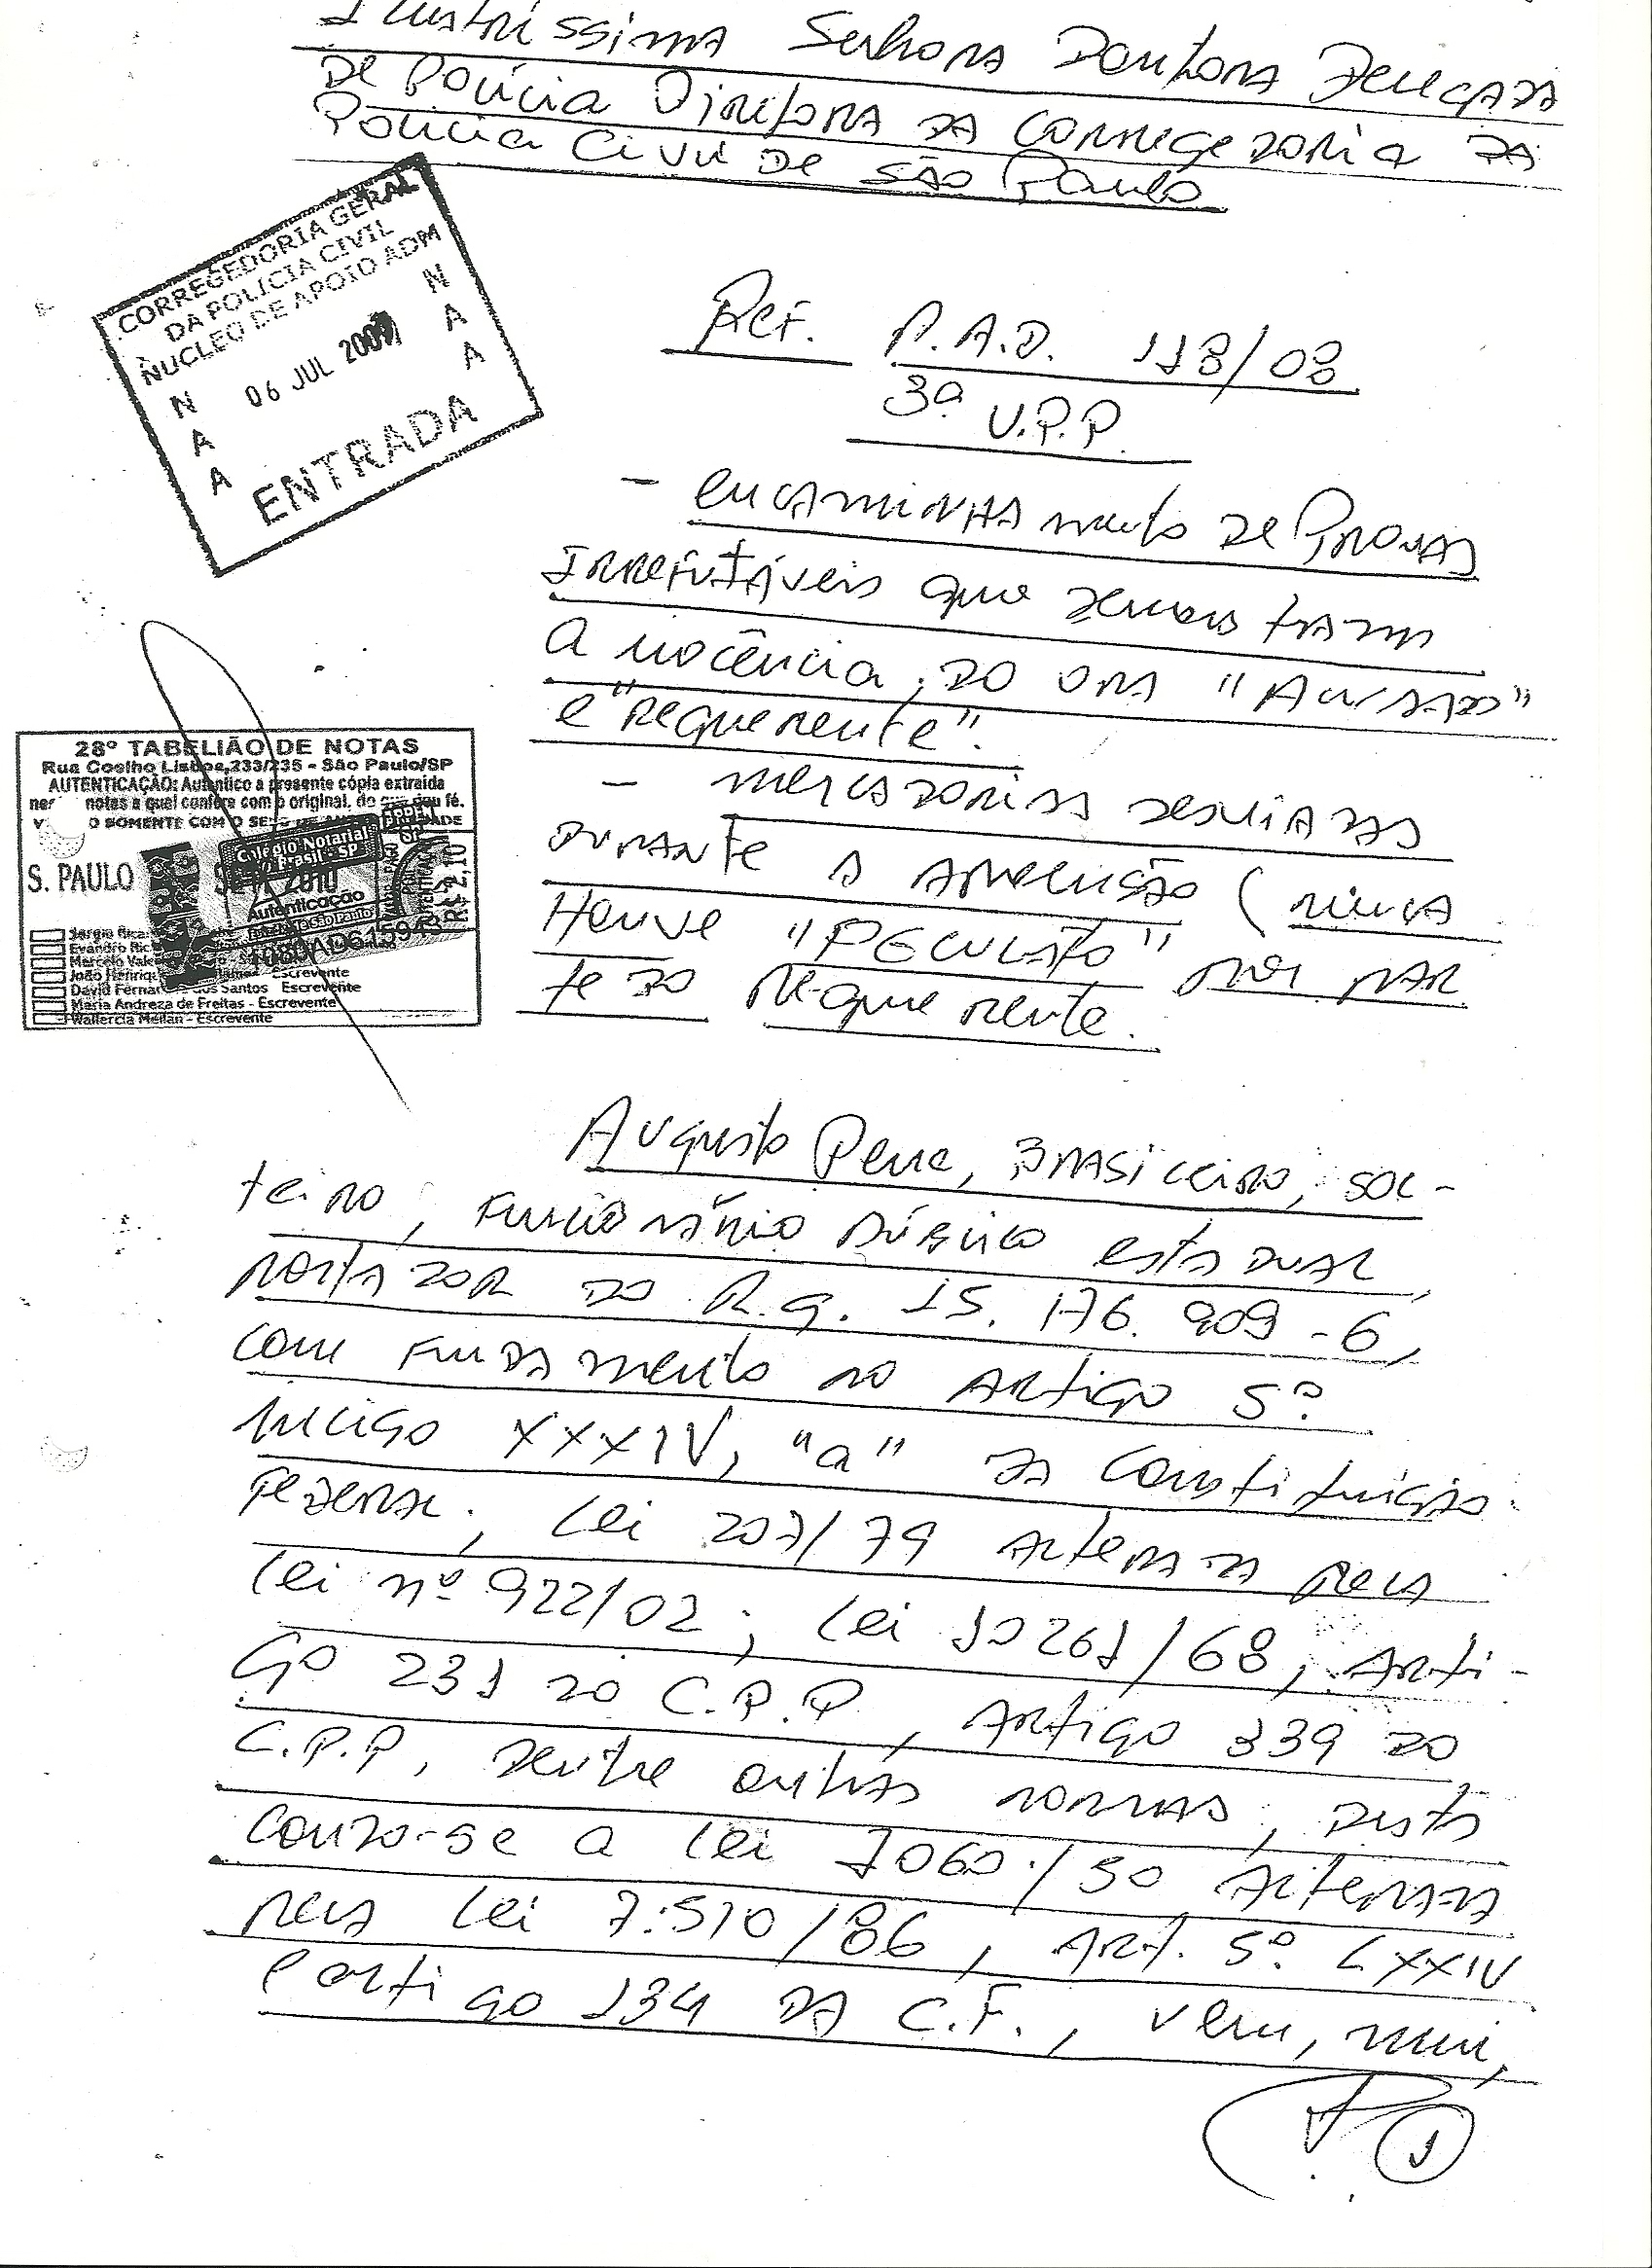 Ilustríssima Senhora Doutora Delegada
de Polícia Diretora da Corregedoria da
Polícia Civil de São Paulo
CORREGEDORIA GERAL
DA POLÍCIA CIVIL
NUCLEO DE APOIO ADM
N A A
06 JUL 2009
N A A
ENTRADA
Ref. P.A.D. 118/08
3ª U.P.P.
- encaminhamento de Provas
Irrefutáveis que demonstram
a inocência, do ora "Acusado"
e "requerente".
- mercadorias desviadas
durante a apreensão (nunca
Houve "PECULATO" por par
te do requerente.
28º TABELIÃO DE NOTAS
Rua Coelho Lisboa,233/235 - São Paulo/SP
AUTENTICAÇÃO: Autentico a presente cópia extraida
notas a qual confere com o original, do que dou fé.
O SOMENTE COM O
S. PAULO
2010
Colégio Notarial
do Brasil - SP
Autenticação
R$ 2,10
AUTENTICAÇÃO
1080AD615943
Sergio Rica
Evandro Ric
Marcelo Vale
João Henriq Escrevente
David Fernan dos Santos Escrevente
Maria Andreza de Freitas - Escrevente
Wallercia Meilan - Escrevente
Augusto Pena, Brasileiro, sol-
teiro, Funcionário Público estadual,
portador do R.g. 15.176.909-6,
com Fundamento no Artigo 5º
inciso XXXIV, "a" da Constituição
Federal; Lei 207/79 alterada pela
Lei nº 922/02; Lei 10261/68, Arti-
go 231 do C.P.P, Artigo 339 do
C.P.P, dentre outras normas, desta
cando-se a Lei 1060/50 alterada
pela Lei 7.510/86, Art. 5º LXXIV
e artigo 134 da C.F., vem, mui,
1